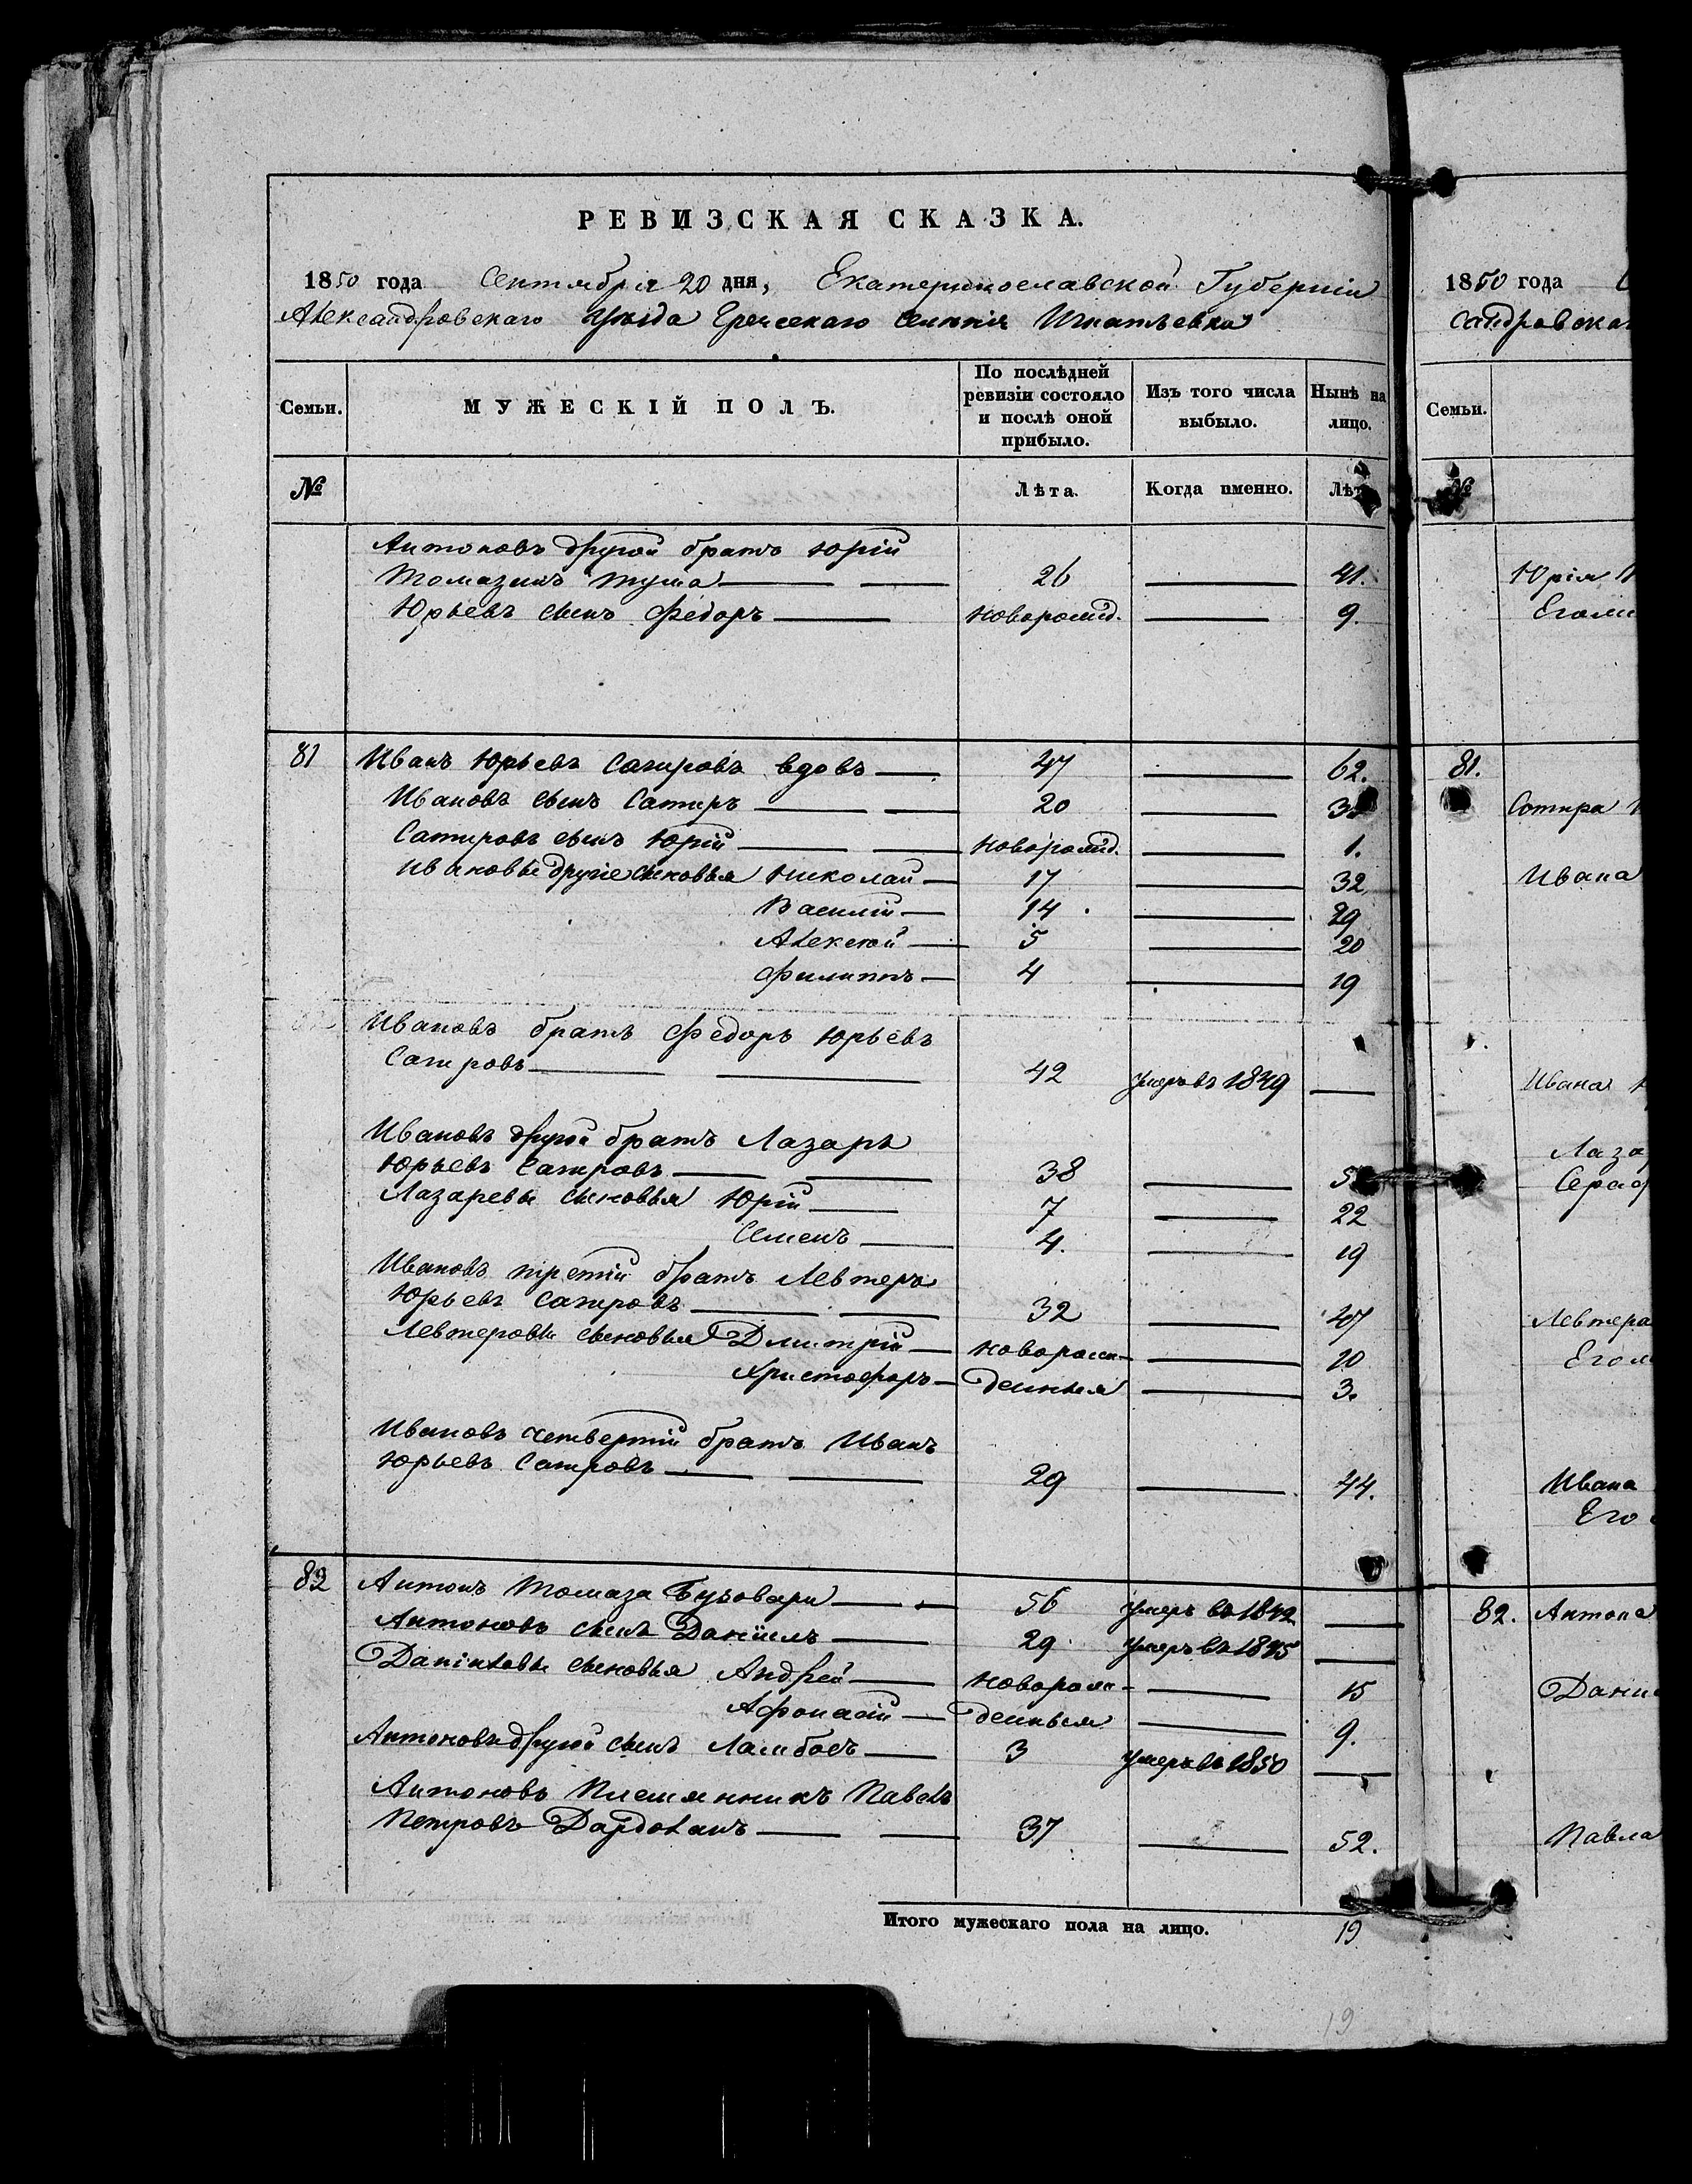 РЕВИЗСКАЯ СКАЗКА.
1850 года Сентября 20 дня, Екатеринославской Губерніи
Александровскаго Уѣзда Греческаго селенія Игнатьевка
Семьи.
МУЖЕСКІЙ ПОЛЪ.
По послѣдней ревизіи состояло и послѣ оной прибыло.
Изъ того числа выбыло.
Нынѣ на лицо.
№
Лѣта.
Когда именно.
Лѣт
Антоновъ другой братъ Юрій
Томазинъ Тума 26 41.
Юрьевъ сынъ Федоръ новорожд. 9.
81 Иванъ Юрьевъ Сатировъ вдовъ 47 62.
Ивановъ сынъ Сатиръ 20 35
Сатировъ сынъ Юрій новорожд. 1.
Ивановы другіе сыновья Николай 17 32
Василій 14 29
Алексей 5 20
Филиппъ 4 19
Ивановъ братъ Федоръ Юрьевъ
Сатировъ 42 умеръ въ 1849
Ивановъ другой братъ Лазарь
Юрьевъ Сатировъ 38 5
Лазаревы сыновья Юрій 7 22
Семенъ 4. 19
Ивановъ третій братъ Левтеръ
Юрьевъ Сатировъ 32 47
Левтеровы сыновья Дмитрій новорож- 10
Христофоръ денныя 3.
Ивановъ четвертій братъ Иванъ
Юрьевъ Сатировъ 29 44.
82 Антонъ Томаза 56 умеръ въ 1842
Антоновъ сынъ Даніилъ 29 умеръ въ 1845
Даніиловы сыновья Андрей новорож- 15
Афонасій денныя 9.
Антоновъ другой сынъ Ламбосъ 3 умеръ въ 1850
Антоновъ Племянникъ Павелъ
Петровъ 37 52.
Итого мужескаго пола на лицо. 19
19
1850 года
сандровска
Семьи.
№
Юрія
Его
81.
Сотира
Ивана
Ивана
Лаза
Сера
Левтера
Его
Ивана
Его
82. Антона
Дани
Павла